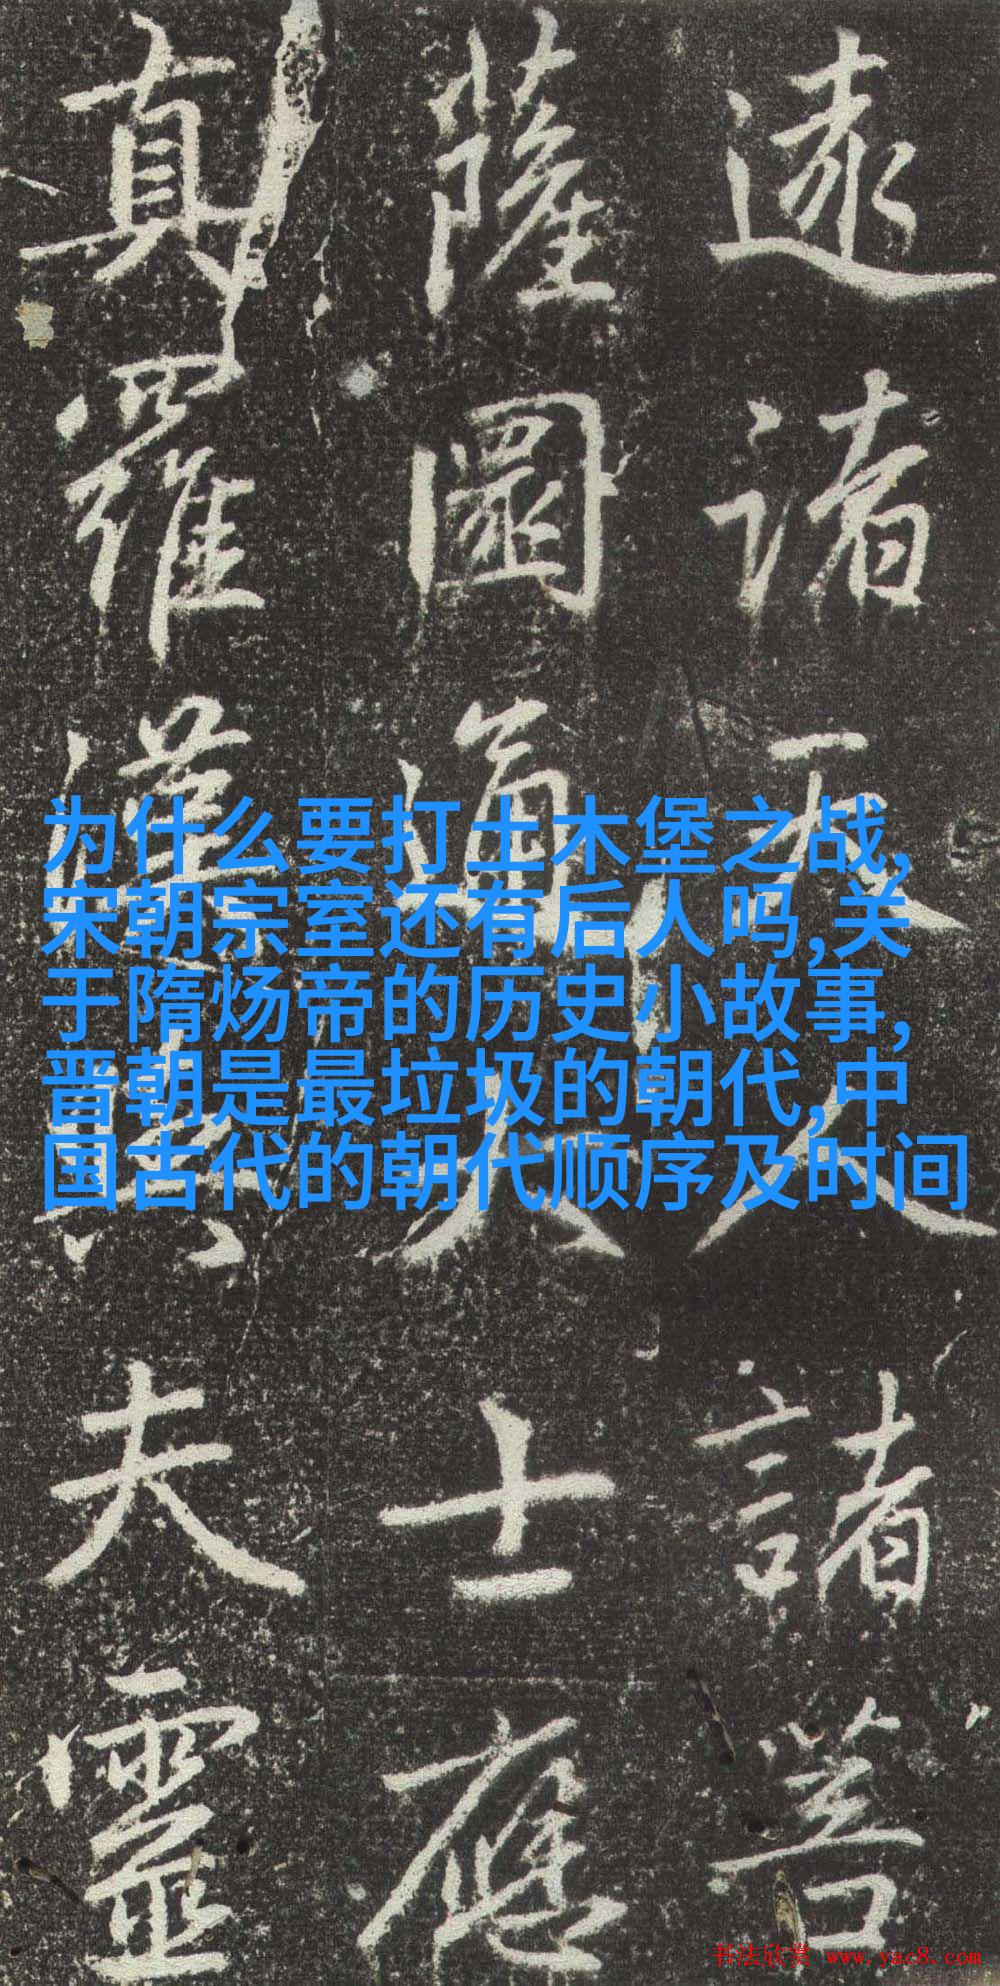 逮諸天人諸菩
薩圓通大士應
真羅漢與夫靈
为什么要打土木堡之战,
宋朝宗室还有后人吗,关
于隋炀帝的历史小故事,
晋朝是最垃圾的朝代,中
国古代的朝代顺序及时间
书法欣赏 www.yac8.com